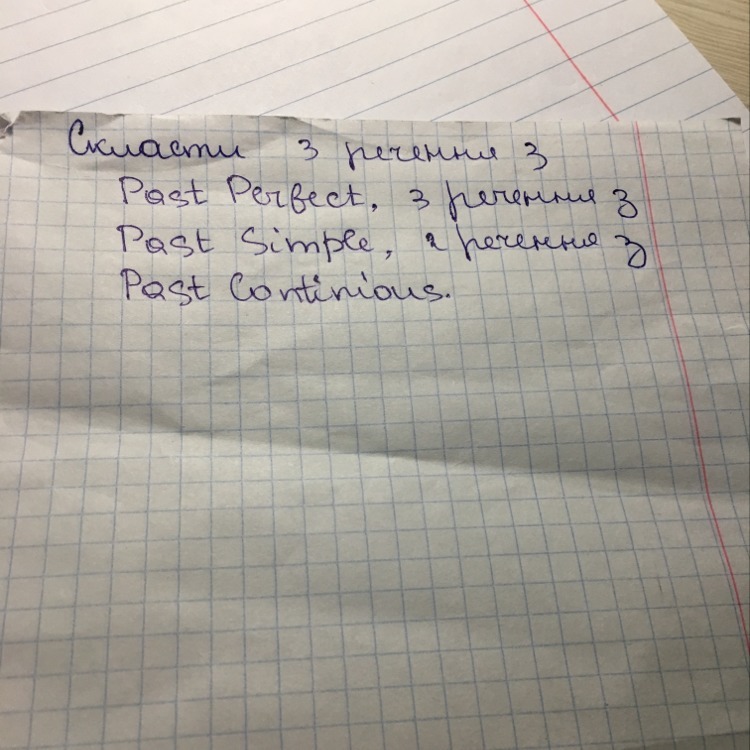 Скласти 3 речення з
Past Perfect, 3 речення з
Past Simple, 2 речення з
Past Continious.